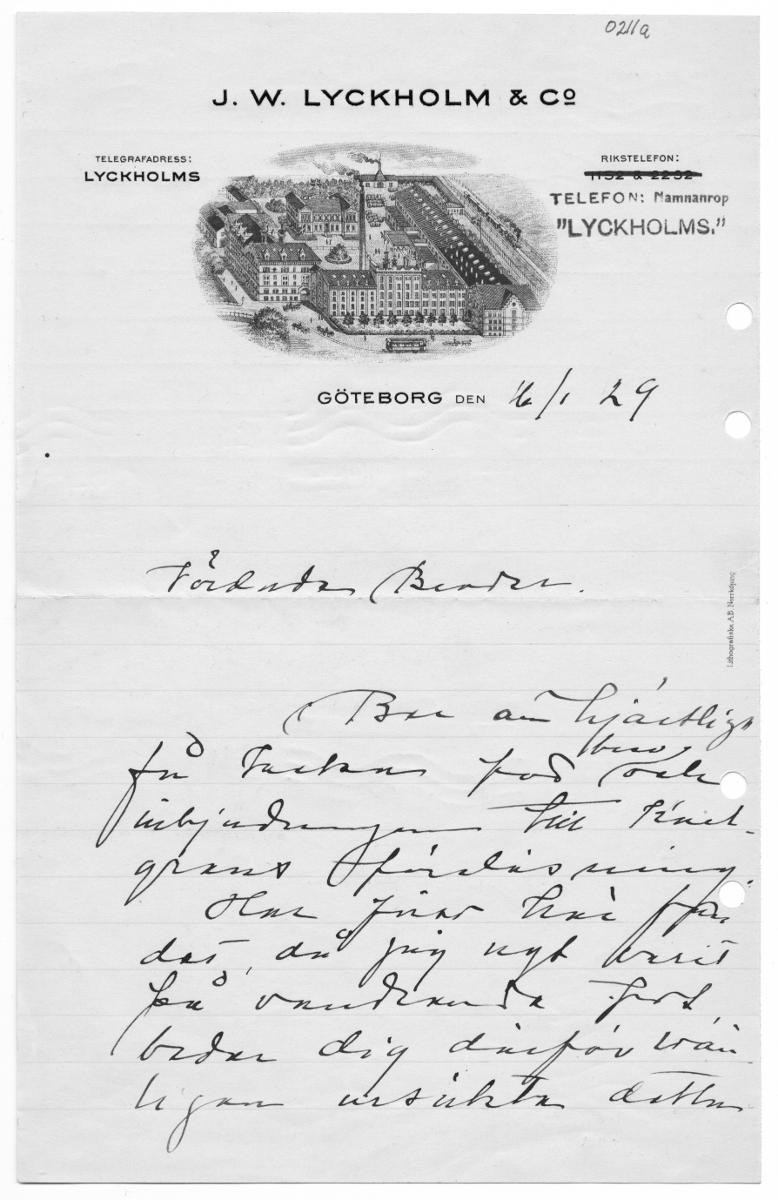 0211a
J. W. LYCKHOLM & Cº
TELEGRAFADRESS:
LYCKHOLMS
RIKSTELEFON:
1152 & 2252
TELEFON: Namnanrop
"LYCKHOLMS."
GÖTEBORG DEN 16/1 29
Lithografiska A.B. Norrköping
Ber att hjärtligt
få tacka för brev och
inbjudningen till
föreläsning.
Har
det, då jag nyt varit
på vandrande fot,
beder dig därför vän
ligen ursäkta detta